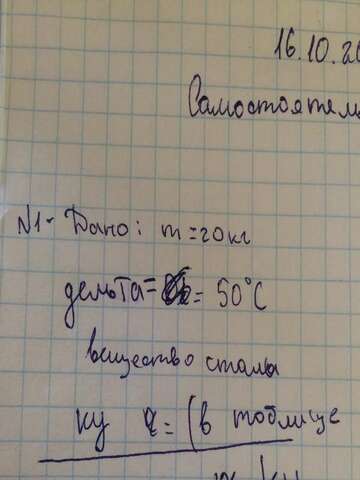 16.10.20
Самостоятель
N1- Дано: m=20кг
дельта= = 50°С
вещество сталь
ку q= (в таблице